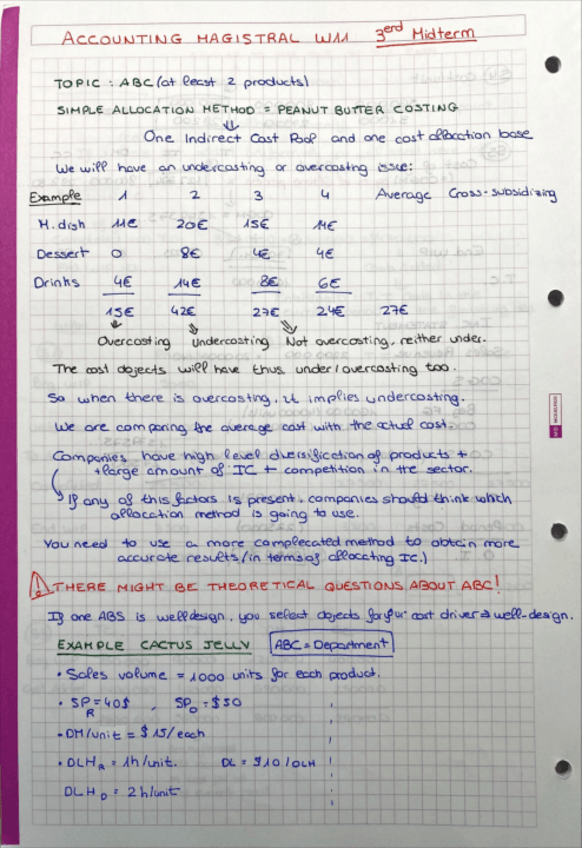 ACCOUNTING MAGISTRAL W11 3erd Midterm
TOPIC : ABC (at least 2 products)
SIMPLE ALLOCATION METHOD = PEANUT BUTTER COSTING
One Indirect Cost Pool and one cost allocation base
We will have an undercasting or overcasting issue:
Example 1 2 3 4 Average Cross-subsidizing
M. dish 11€ 20€ 15€ 14€
Dessert 0 8€ 4€ 4€
Drinks 4€ 14€ 8€ 6€
15€ 42€ 27€ 24€ 27€
Overcosting Undercosting Not overcosting, neither under.
The cost objects will have thus under/overcosting too.
So when there is overcosting, it implies undercosting.
We are comparing the average cost with the actual cost.
Companies have high level diversification of products +
+ large amount of IC + competition in the sector.
If any of this factors is present, companies should think which
allocation method is going to use.
You need to use a more complecated method to obtain more
accurate results (in terms of allocating IC.)
! THERE MIGHT BE THEORETICAL QUESTIONS ABOUT ABC!
If one ABS is well design, you select objects for your cost driver → well-design.
EXAMPLE CACTUS JELLY ABC = Department
• Sales volume = 1000 units for each product.
• SP R = 40$ , SP D = $50
• DM/unit = $15/each
• DLH R = 1h/unit. DL = $10/DLH
DLH D = 2h/unit